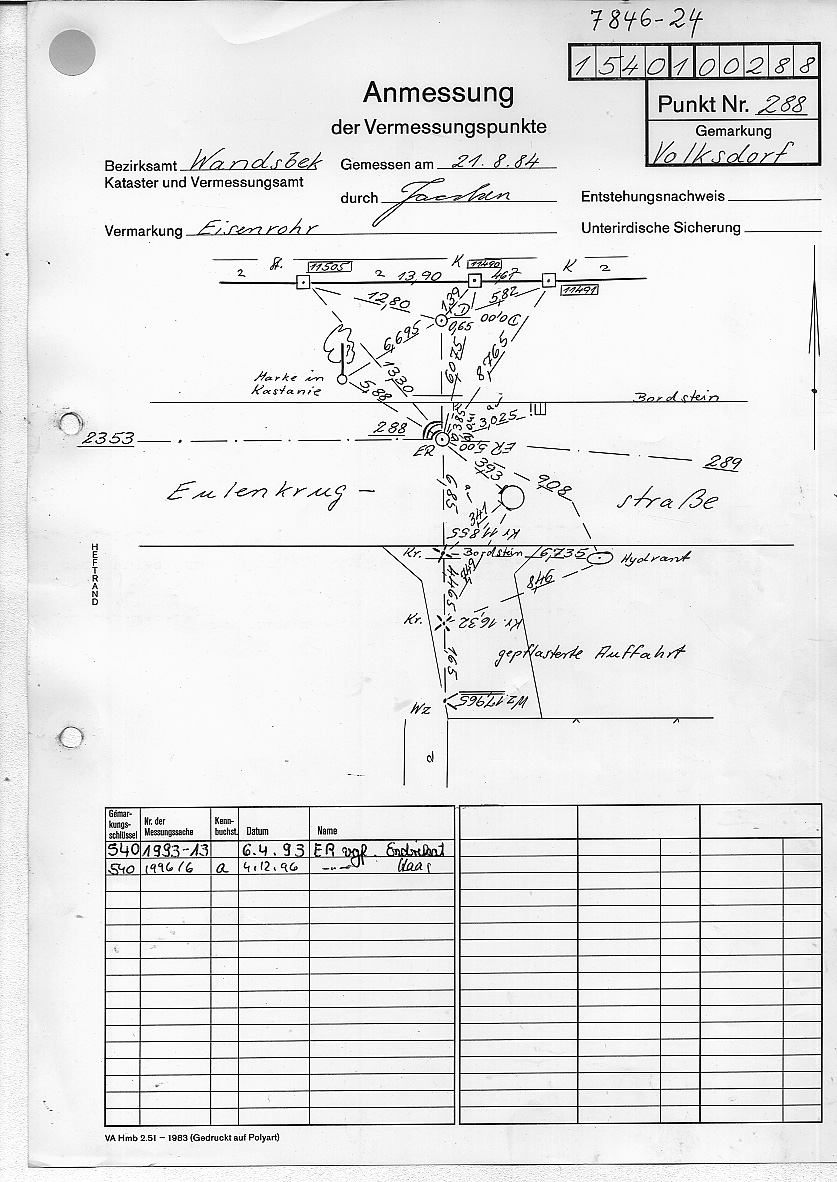 7846-24
1540100288
Anmessung
der Vermessungspunkte
Punkt Nr. 288
Gemarkung
Volksdorf
Bezirksamt Wandsbek
Kataster und Vermessungsamt
Gemessen am 21.8.84
durch
Entstehungsnachweis
Vermarkung Eisenrohr
Unterirdische Sicherung
2 St. 11505 2 13,90 K 11490 4,67 K 2
11491
12,80 1,39 5,82
0,65 D 0,00
6,695 6,075 8,765
Marke in
Kastanie
13,30
5,88
Bordstein
3,025
2353 288
ER
ER 5,00
289
3,93 908
Eulenkrug - straße
6,85
3,41
Kr 11,855
Kr. Bordstein 6,735 Hydrant
4,465 8,49
846
Kr. Kr 16,32
gepflasterte Auffahrt
1,65
Wz Wz 17,965
d
HEFTRAND
Gemar-
kungs-
schlüssel Nr. der
Messungssache Kenn-
buchst. Datum Name
540 1993-13 6.4.93 ER vgf.
540 1996/6 a 4.12.96 -"-
VA Hmb 2.51 – 1983 (Gedruckt auf Polyart)